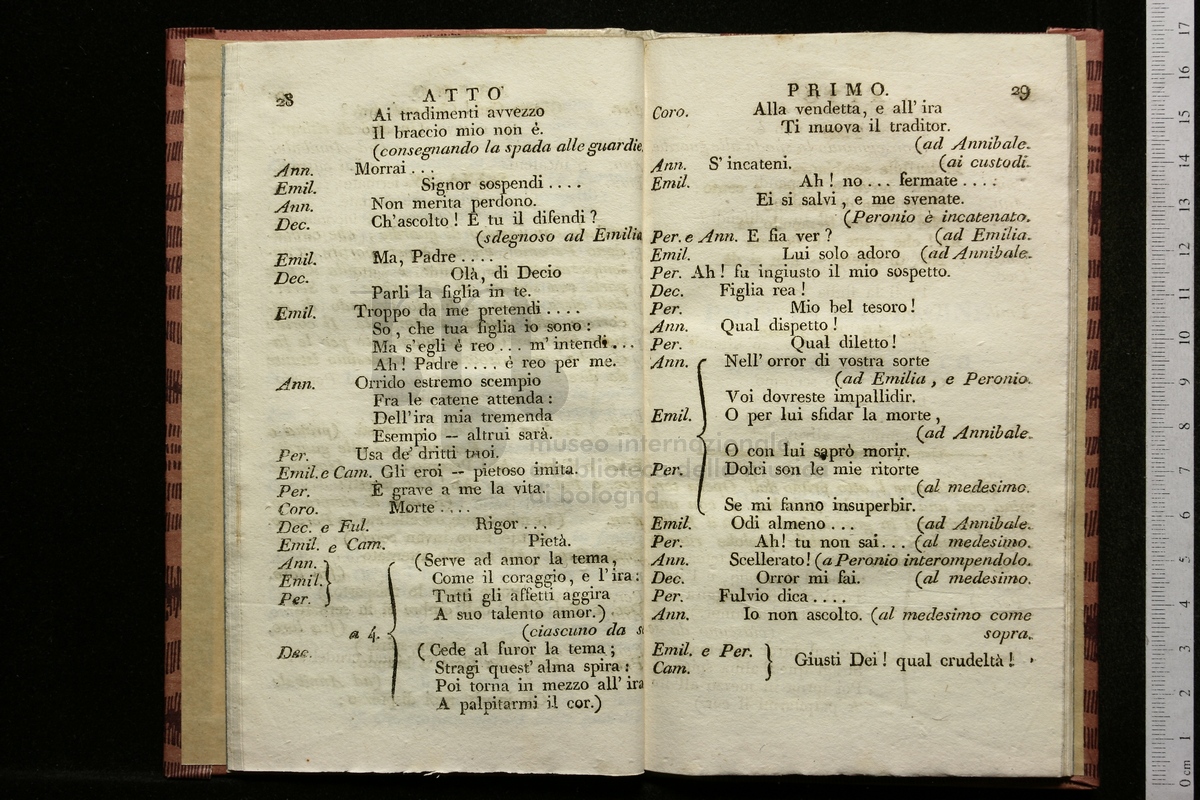 28 ATTO
Ai tradimenti avvezzo
Il braccio mio non è.
(consegnando la spada alle guardie.
Ann. Morrai . . .
Emil. Signor sospendi . . . .
Ann. Non merita perdono.
Dec. Ch'ascolto ! E tu il difendi ?
(sdegnoso ad Emilia
Emil. Ma, Padre . . . .
Dec. Olà, di Decio
Parli la figlia in te.
Emil. Troppo da me pretendi . . . .
So , che tua figlia io sono :
Ma s'egli é reo . . . m' intendi . . .
Ah! Padre . . . . é reo per me.
Ann. Orrido estremo scempio
Fra le catene attenda :
Dell'ira mia tremenda
Esempio — altrui sarà.
Per. Usa de' dritti tuoi.
Emil. e Cam. Gli eroi — pietoso imita.
Per. È grave a me la vita.
Coro. Morte . . . .
Dec. e Ful. Rigor . . .
Emil. e Cam. Pietà.
Ann. (Serve ad amor la tema,
Emil. Come il coraggio, e l'ira :
Per. Tutti gli affetti aggira
A suo talento amor.)
a 4. (ciascuno da s
Dec. ( Cede al furor la tema ;
Stragi quest' alma spira :
Poi torna in mezzo all' ira
A palpitarmi il cor.)
PRIMO. 29
Coro. Alla vendetta, e all' ira
Ti muova il traditor.
(ad Annibale.
Ann. S' incateni. (ai custodi.
Emil. Ah ! no . . . fermate . . . .
Ei si salvi , e me svenate.
(Peronio è incatenato.
Per. e Ann. E fia ver ? (ad Emilia.
Emil. Lui solo adoro (ad Annibale.
Per. Ah ! fu ingiusto il mio sospetto.
Dec. Figlia rea !
Per. Mio bel tesoro !
Ann. Qual dispetto !
Per. Qual diletto !
Ann. Nell' orror di vostra sorte
(ad Emilia , e Peronio.
Voi dovreste impallidir.
Emil. O per lui sfidar la morte ,
(ad Annibale.
O con lui saprò morir.
Per. Dolci son le mie ritorte
(al medesimo.
Se mi fanno insuperbir.
Emil. Odi almeno . . . (ad Annibale.
Per. Ah! tu non sai . . . (al medesimo.
Ann. Scellerato! (a Peronio interompendolo.
Dec. Orror mi fai. (al medesimo.
Per. Fulvio dica . . . .
Ann. Io non ascolto. (al medesimo come
sopra.
Emil. e Per. Giusti Dei ! qual crudeltà !
Cam.
museo internazionale
biblioteca della musica
di bologna
17
16
15
14
13
12
11
10
9
8
7
6
5
4
3
2
1
0 cm